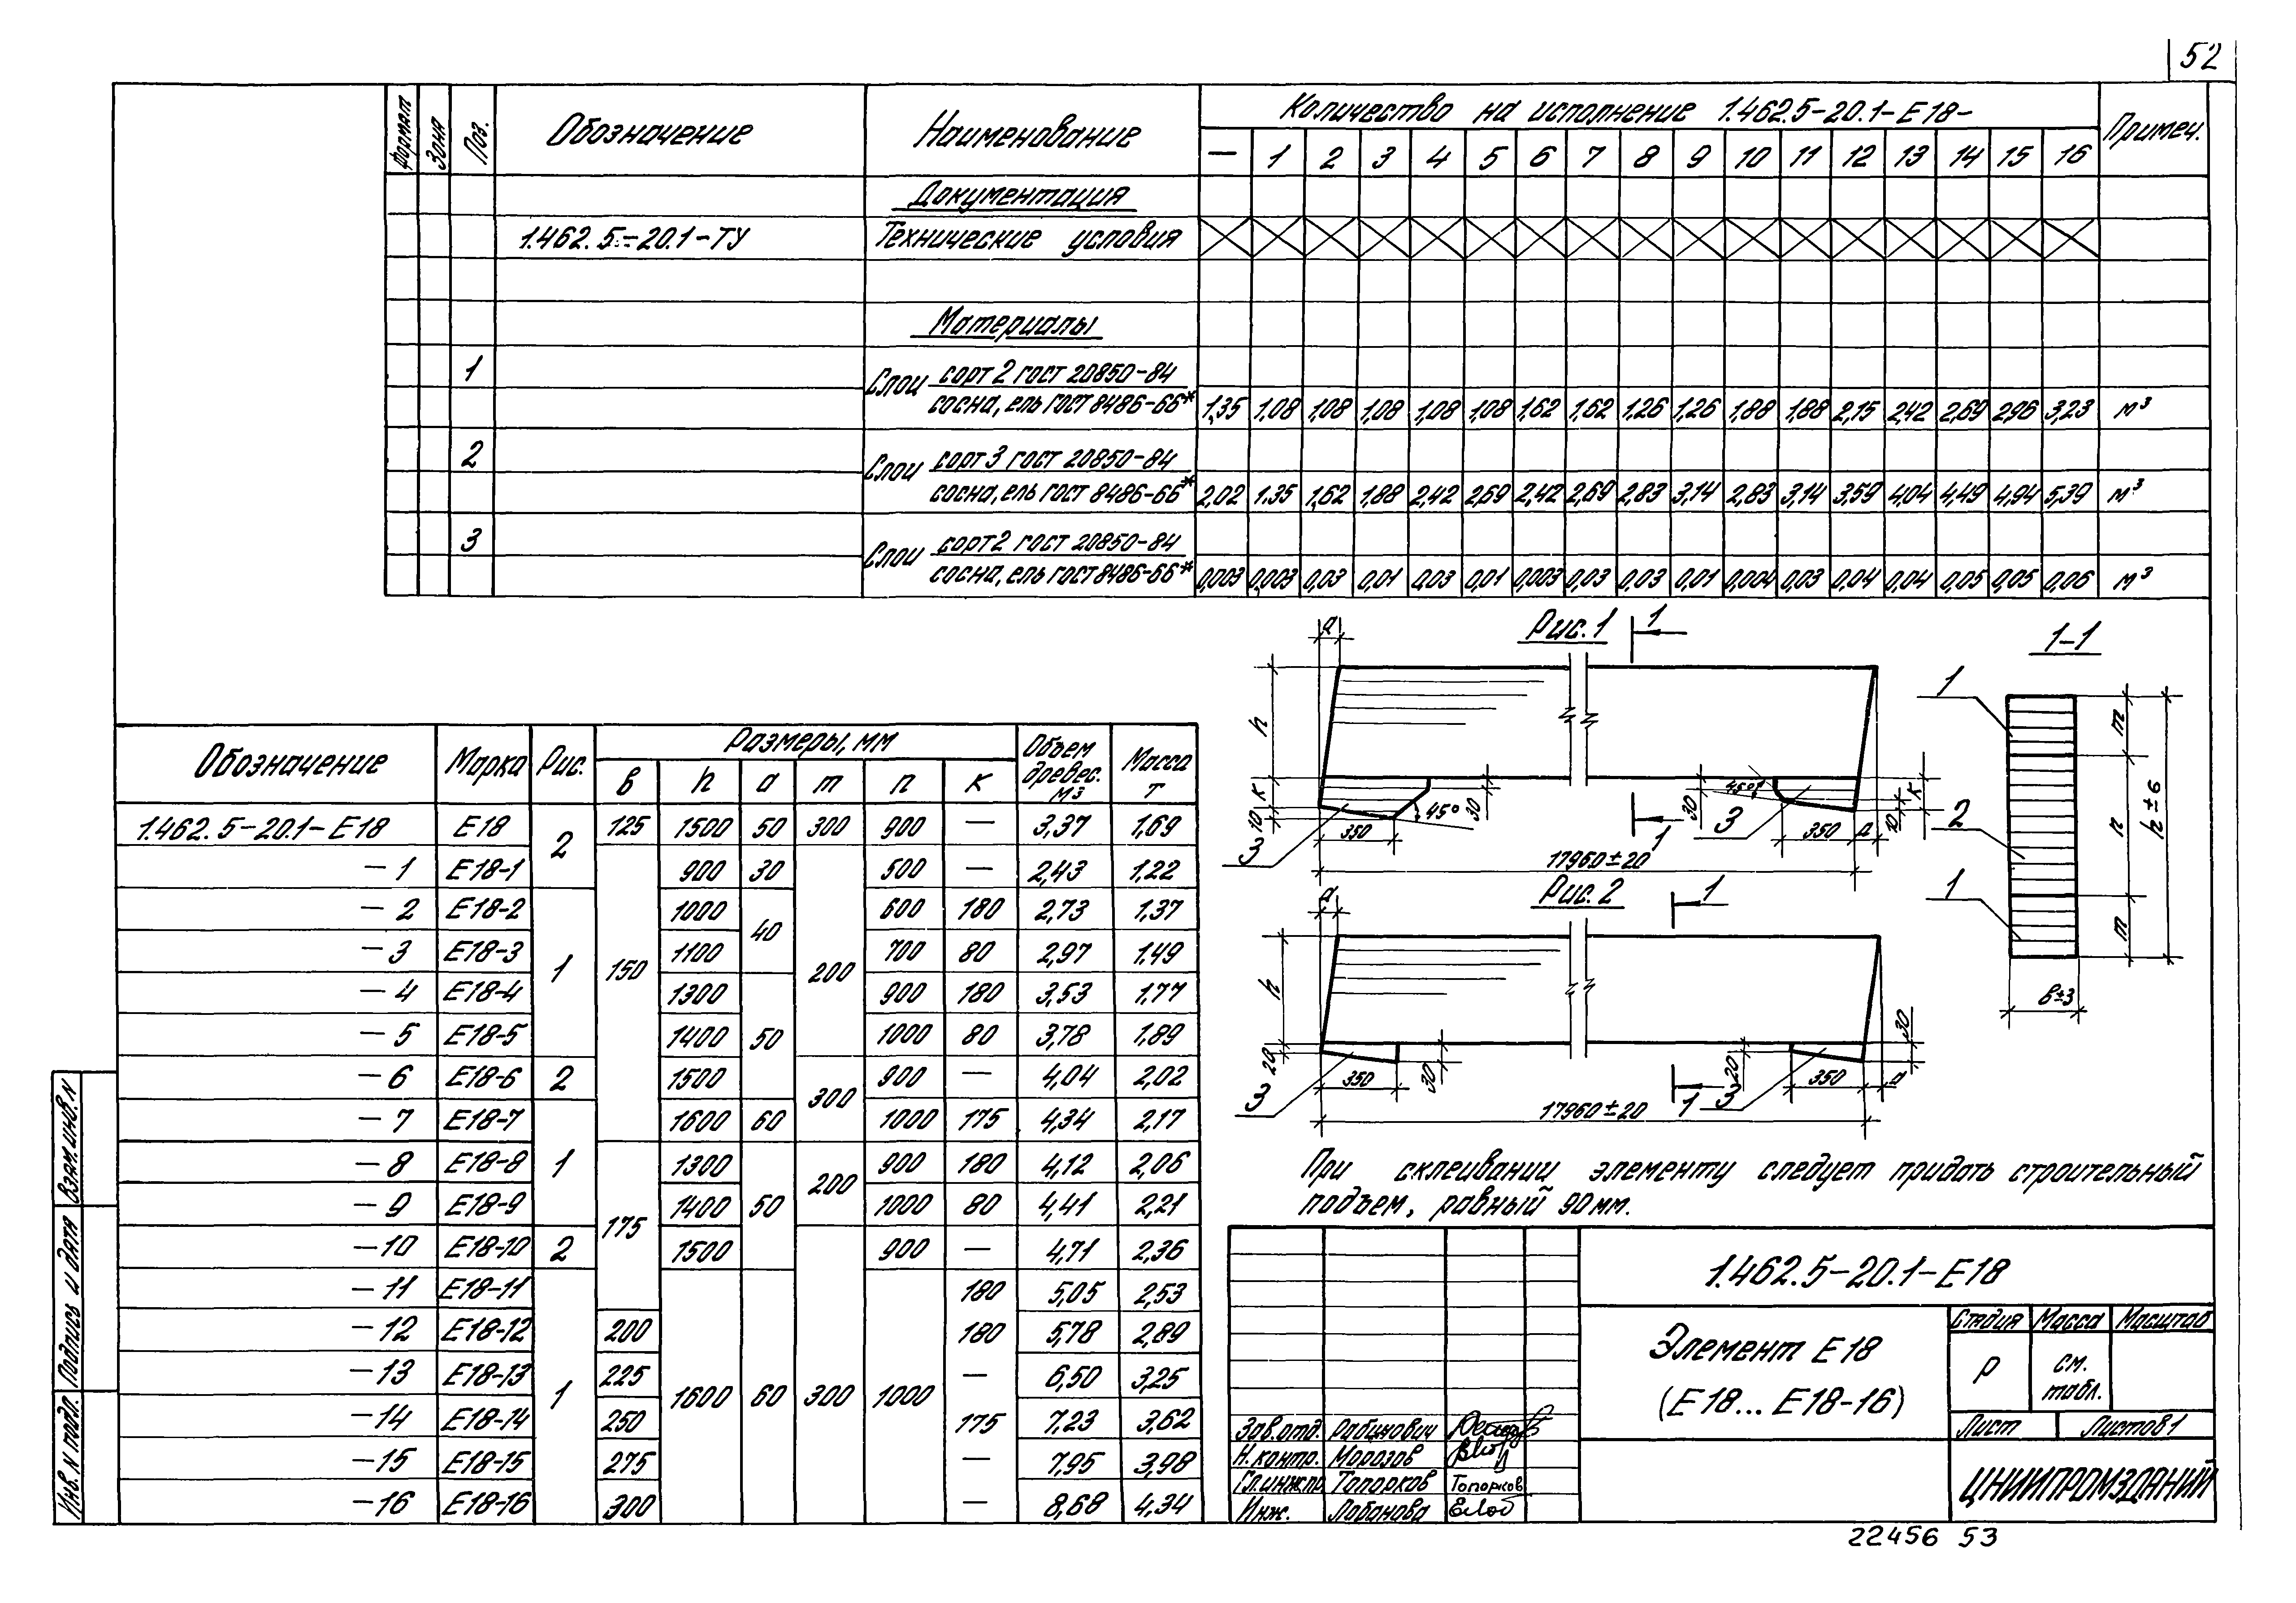 52
Формат Зона Поз. Обозначение Наименование Количество на исполнение 1.462.5-20.1-Е18- Примеч.
— 1 2 3 4 5 6 7 8 9 10 11 12 13 14 15 16
Документация
1.462.5-20.1-ТУ Технические условия
Материалы
1 Слои сорт 2 ГОСТ 20850-84
сосна, ель ГОСТ 8486-66* 1,35 1,08 1,08 1,08 1,08 1,08 1,62 1,62 1,26 1,26 1,88 1,88 2,15 2,42 2,69 2,96 3,23 м³
2 Слои сорт 3 ГОСТ 20850-84
сосна, ель ГОСТ 8486-66* 2,02 1,35 1,62 1,88 2,42 2,69 2,42 2,69 2,83 3,14 2,83 3,14 3,59 4,04 4,49 4,94 5,39 м³
3 Слои сорт 2 ГОСТ 20850-84
сосна, ель ГОСТ 8486-66* 0,003 0,003 0,03 0,01 0,03 0,01 0,003 0,03 0,03 0,01 0,004 0,03 0,04 0,04 0,05 0,05 0,06 м³
Обозначение Марка Рис. Размеры, мм Объем древес. м³ Масса т
в h а m n к
1.462.5-20.1-Е18 Е18 2 125 1500 50 300 900 — 3,37 1,69
-1 Е18-1 900 30 500 — 2,43 1,22
-2 Е18-2 1000 40 600 180 2,73 1,37
-3 Е18-3 1 150 1100 200 700 80 2,97 1,49
-4 Е18-4 1300 900 180 3,53 1,77
-5 Е18-5 1400 50 1000 80 3,78 1,89
-6 Е18-6 2 1500 300 900 — 4,04 2,02
-7 Е18-7 1600 60 1000 175 4,34 2,17
-8 Е18-8 1 1300 200 900 180 4,12 2,06
-9 Е18-9 175 1400 50 1000 80 4,41 2,21
-10 Е18-10 2 1500 900 — 4,71 2,36
-11 Е18-11 180 5,05 2,53
-12 Е18-12 200 180 5,78 2,89
-13 Е18-13 225 — 6,50 3,25
-14 Е18-14 1 250 1600 60 300 1000 175 7,23 3,62
-15 Е18-15 275 — 7,95 3,98
-16 Е18-16 300 — 8,68 4,34
Рис. 1
1
а
h
к
10
350
45°
30
3
30
45°
3
350
а
10
к
1
17960±20
Рис. 2
1
а
h
20
3
350
30
20
3
350
а
30
1
17960±20
1-1
1
2
1
m
n
m
h±6
в±3
При склеивании элементу следует придать строительный
подъем, равный 90 мм.
1.462.5-20.1-Е18
Элемент Е18
(Е18... Е18-16)
Стадия Масса Масштаб
Р см. табл.
Лист Листов 1
ЦНИИПРОМЗДАНИЙ
Зав.отд. Рабинович
Н.контр. Морозов
Гл.инж.пр Топорков Топорков
Инж. Лобанова
Взам. инв. N
Подпись и дата
Инв. N подл.
22456 53